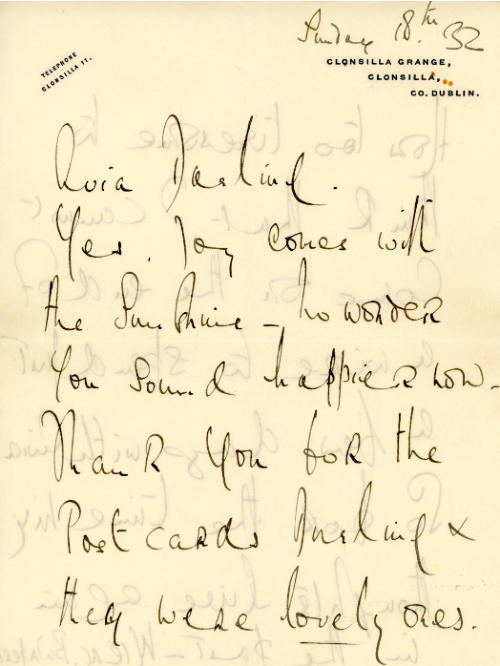 Sunday 18.th 32
TELEPHONE
CLONSILLA 11.
CLONSILLA GRANGE,
CLONSILLA,
CO. DUBLIN.
Avia Darling.
Yes, Joy comes with
the Sunshine – No wonder
You sound happier now –
Thank You for the
Postcards Darling &
they were lovely ones.